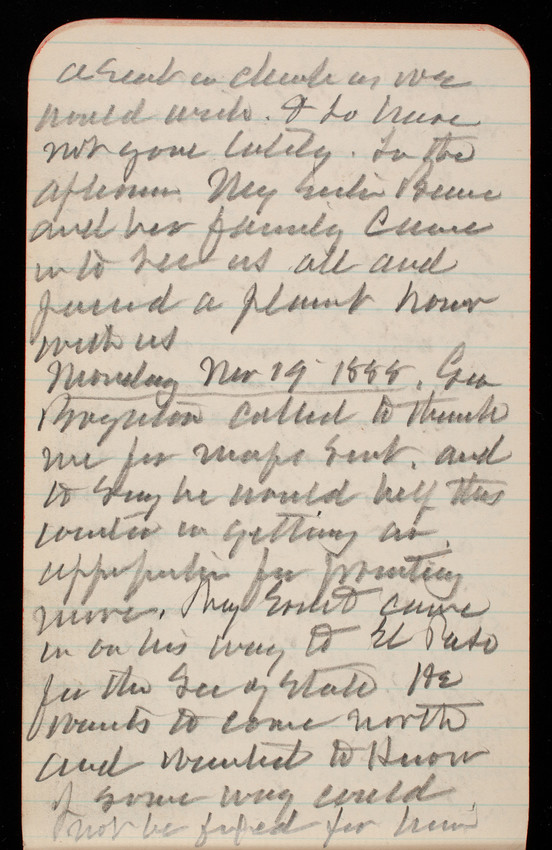 a seat in church as we
would wish. & so have
not gone lately. In the
afternoon My Sister
and her family came
in to see us all and
passed a pleasant hour
with us
Monday Nov 19 1888. Gen
Boynton called to thank
me for maps sent. and
to say he would help this
winter in getting an
appropriation for printing
more. Maj came
in on his way to El Paso
for the Sec of State. He
wants to come north
and wanted to know
if some way could
not be fixed for him